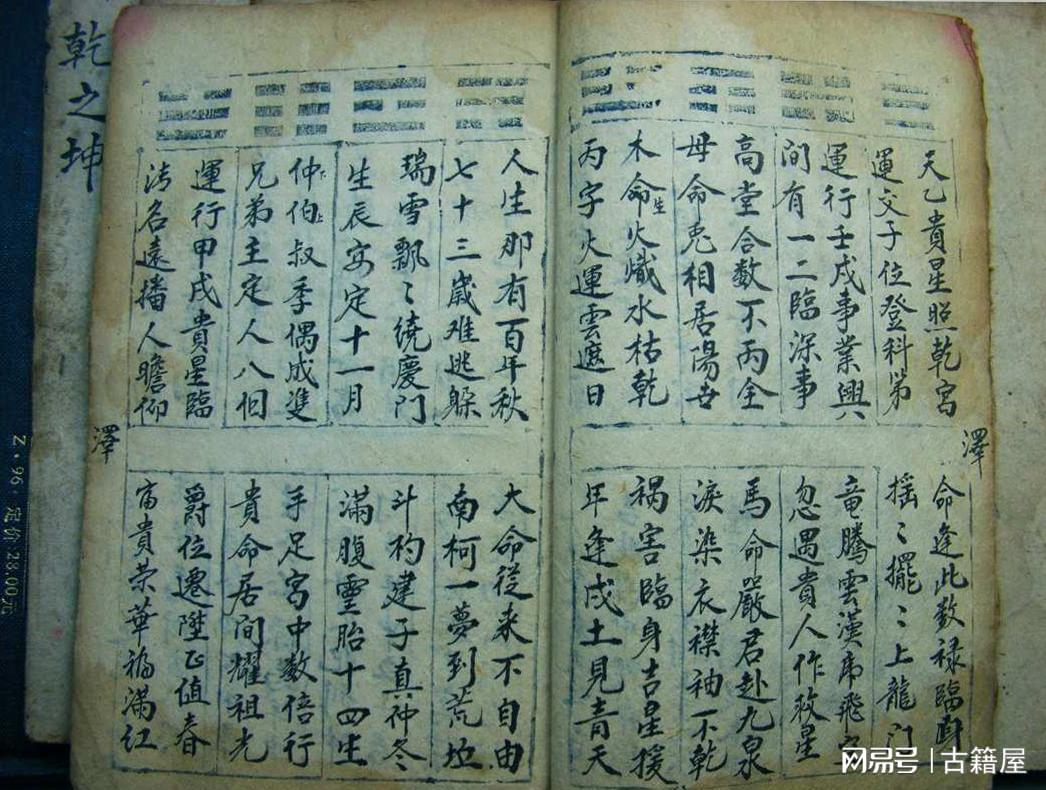 天乙貴星照乾宮
運交子位登科第
運行壬戌事業興
間有一二臨深事
高堂合數不丙全
母命兎相居陽世
木命生火熾水枯乾
丙字火運雲遮日
澤
命逢此数禄臨身
摇〻擺〻上龍門
竜騰雲漢席飛
忽遇貴人作救星
馬命嚴君赴九泉
淚染衣襟袖不乾
禍害臨身吉星援
年逢戌土見青天
人生那有百年秋
七十三歲难逃躲
瑞雪飄〻繞慶門
生辰安定十一月
仲下伯上叔季偶成進
兄弟主定人八個
運行甲戌貴星臨
清名遠播人瞻仰
澤
大命從来不自由
南柯一夢到荒坵
斗杓建子真仲冬
滿腹靈胎十四生
手足宮中数倍行
貴命居間耀祖光
爵位遷陞正值春
富貴荣華福滿
乾之坤
Z·96·定价28.00元
网易号 | 古籍屋